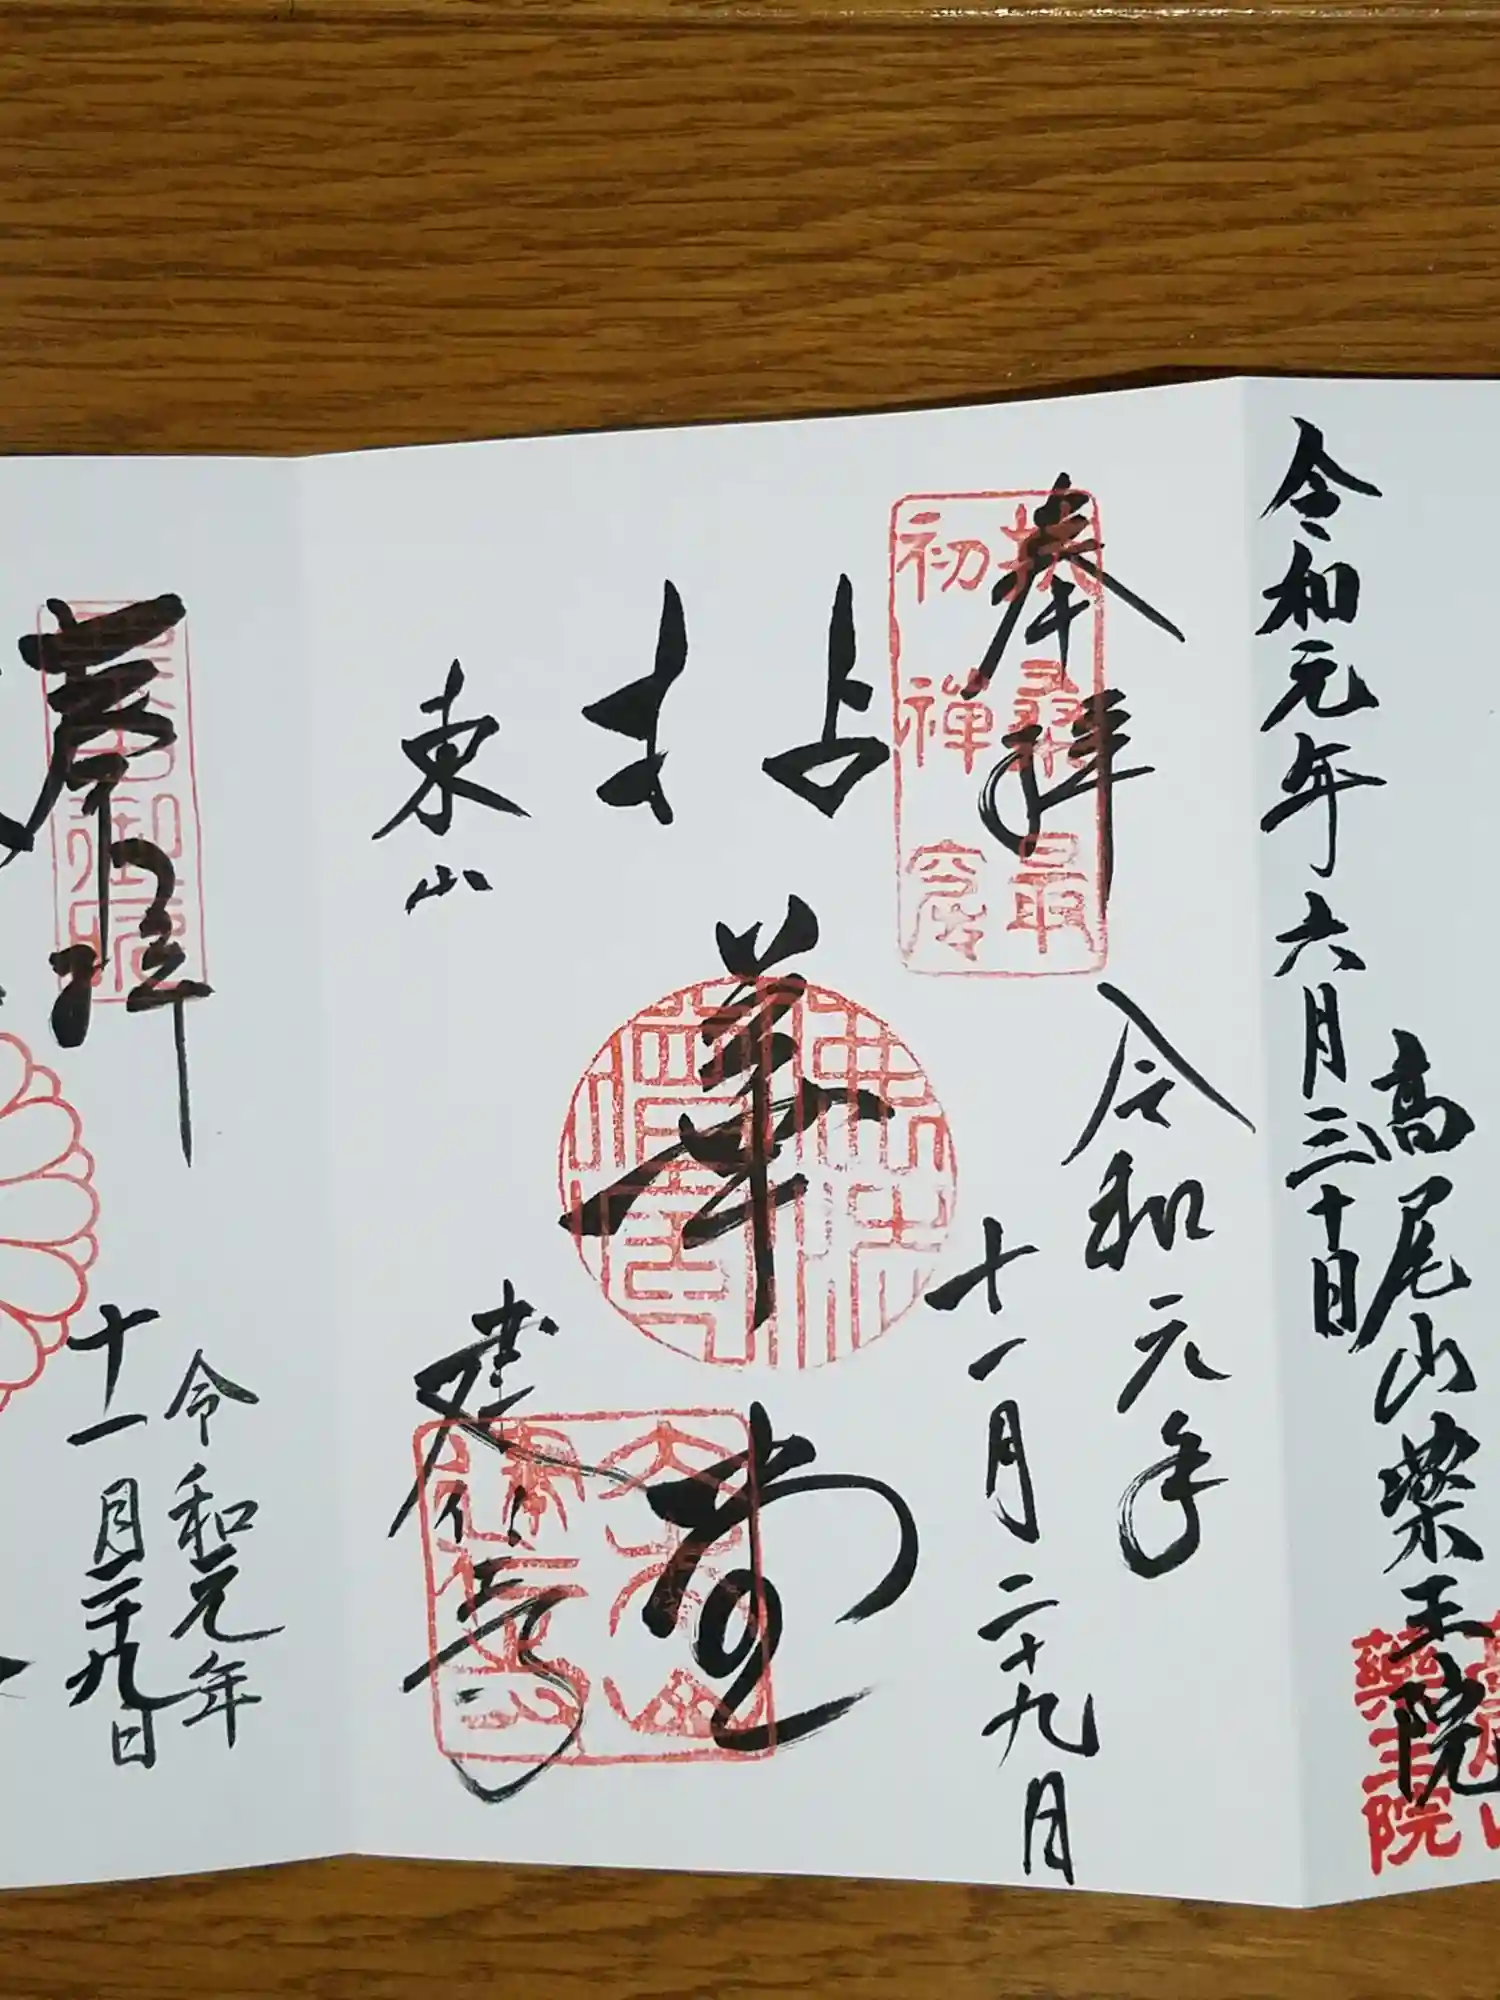 高尾山薬王院
令和元年六月三十日
藥王院
奉拝
扶桑最
初禅窟
令和元年
十一月二十九日
拈華堂
佛法僧寶
東山
建仁寺
大本山
奉拝
令和元年
十一月二十九日